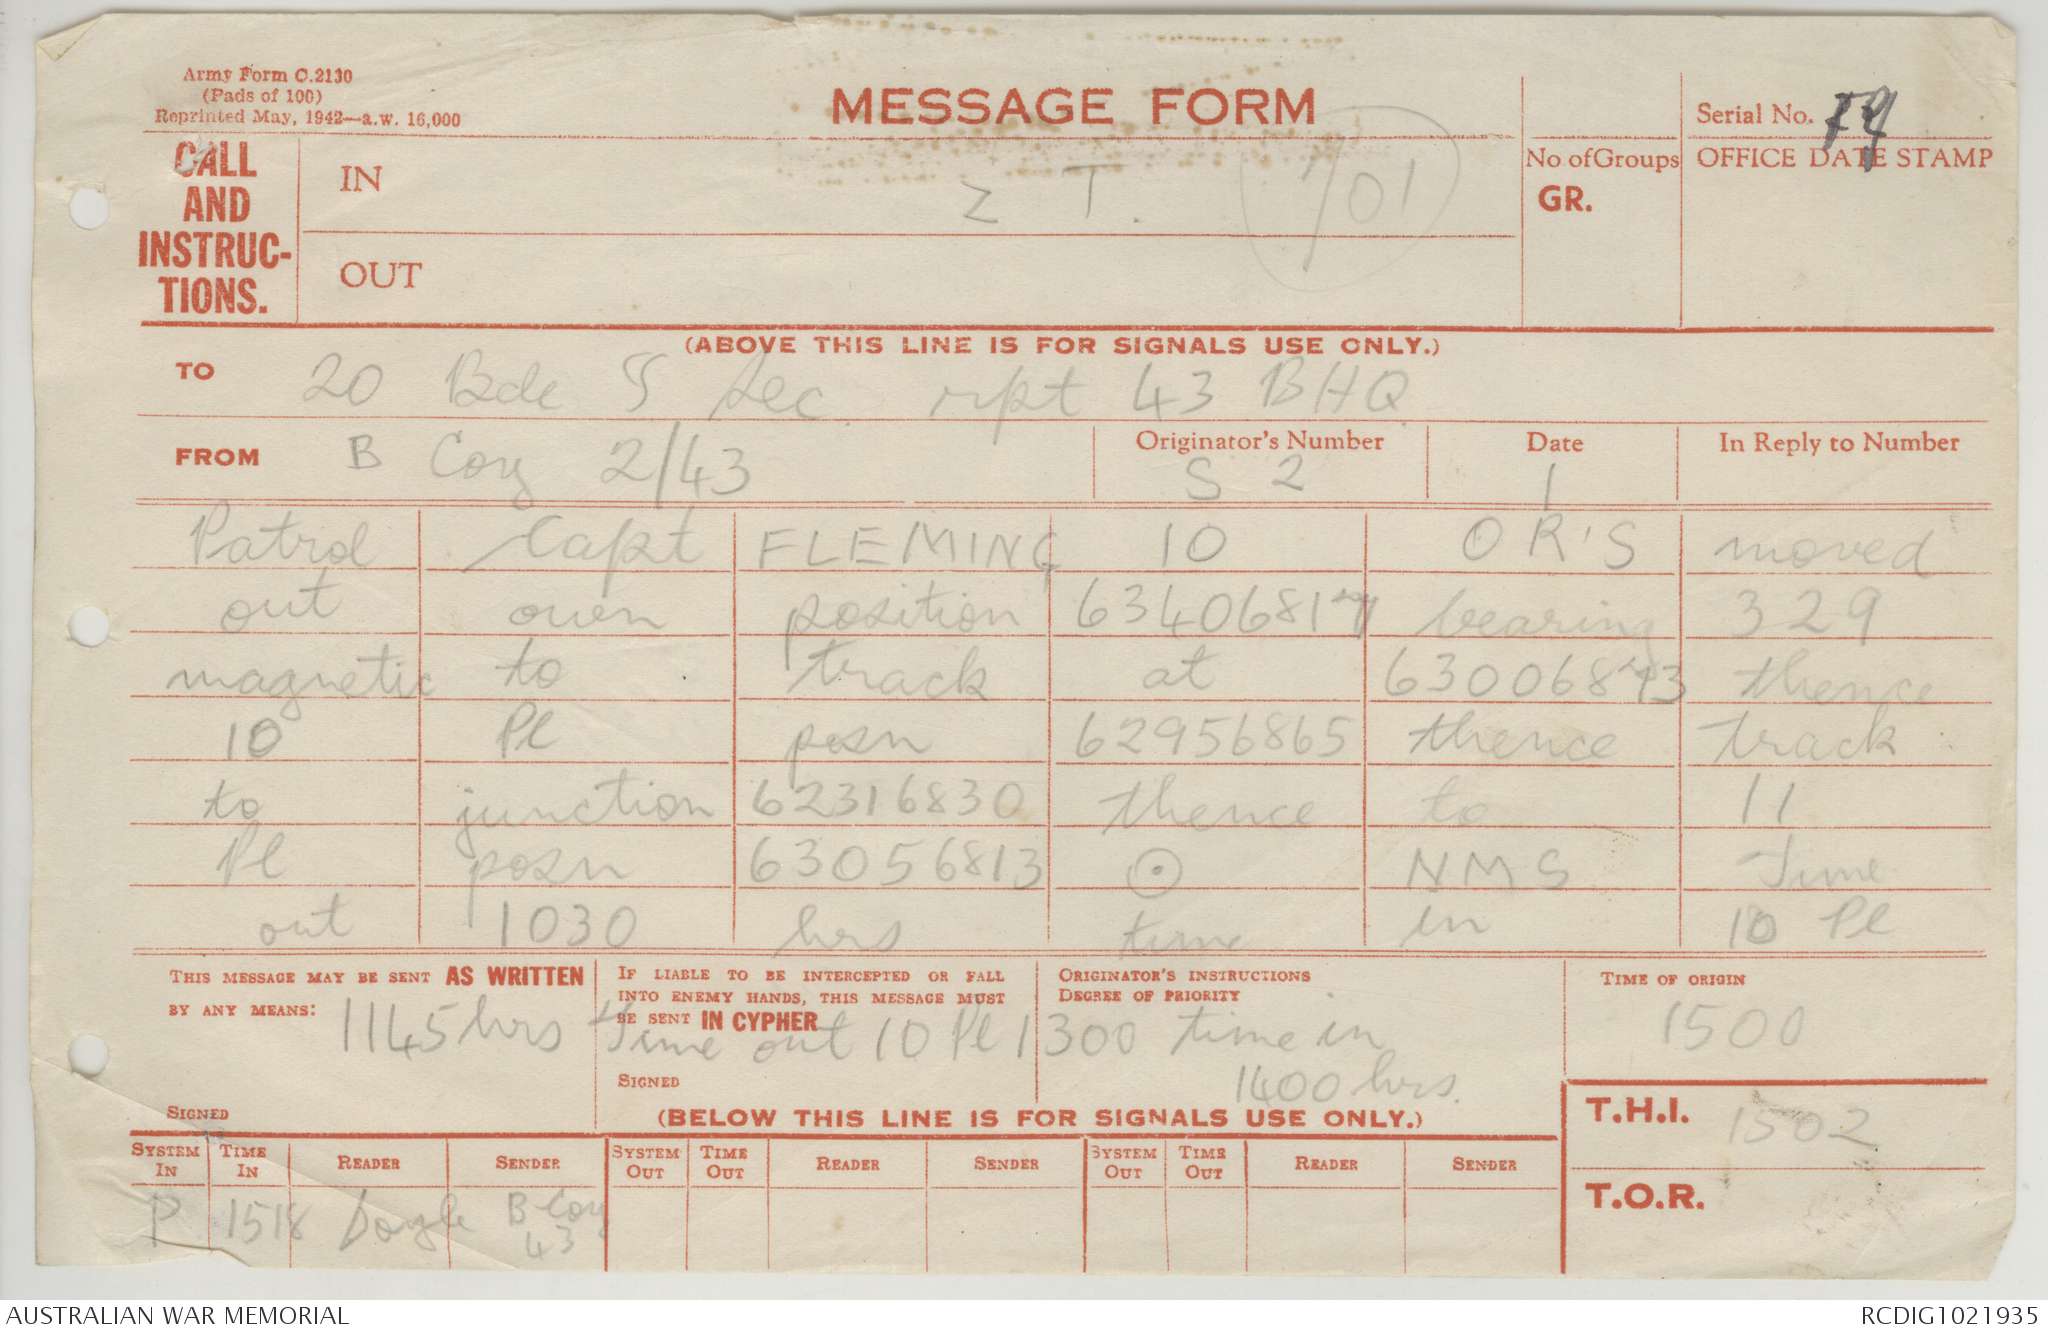 Army Form C.2130
(Pads of 100)
Reprinted May, 1942—a.w. 16,000
MESSAGE FORM
Serial No.
CALL AND INSTRUC-TIONS.
IN
Z T.
701
No of Groups
GR.
OFFICE DATE STAMP
OUT
(ABOVE THIS LINE IS FOR SIGNALS USE ONLY.)
TO 20 Bde S Sec rpt 43 BHQ
FROM B Coy 2/43
Originator's Number S 2
Date 1
In Reply to Number
Patrol Capt FLEMING 10 OR'S moved
out own position bearing 329
magnetic to track at thence
10 Pl posn 62956865 thence track
to junction 62316830 thence to 11
Pl posn 63056813 ⊙ NMS Time
out 1030 hrs time in 10 Pl
THIS MESSAGE MAY BE SENT AS WRITTEN
BY ANY MEANS:
IF LIABLE TO BE INTERCEPTED OR FALL
INTO ENEMY HANDS, THIS MESSAGE MUST
BE SENT IN CYPHER
ORIGINATOR'S INSTRUCTIONS
DEGREE OF PRIORITY
TIME OF ORIGIN
1500
1145 hrs Time out 10 Pl 1300 time in
1400 hrs.
SIGNED
SIGNED
(BELOW THIS LINE IS FOR SIGNALS USE ONLY.)
T.H.I. 1502
SYSTEM IN TIME IN READER SENDER SYSTEM OUT TIME OUT READER SENDER SYSTEM OUT TIME OUT READER SENDER
T.O.R.
P 1518 Doyle B Coy
43
AUSTRALIAN WAR MEMORIAL
RCDIG1021935